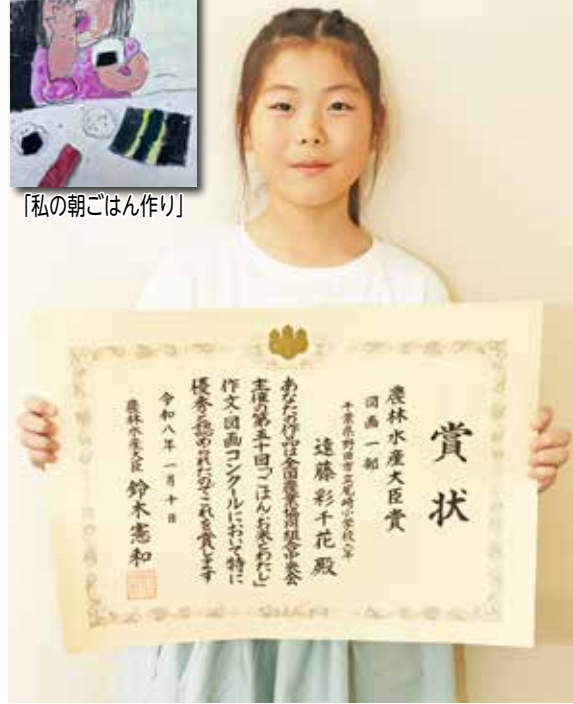 「私の朝ごはん作り」
賞状
農林水産大臣賞
図画一部
千葉県野田市立尾崎小学校
遠藤彩千花殿
あなたの作品は全国農業協同組合中央会
主催の第五十回「ごはん・お米とわたし」
作文・図画コンクールにおいて特に
優秀と認められたのでこれを賞します
令和八年一月十日
農林水産大臣 鈴木憲和